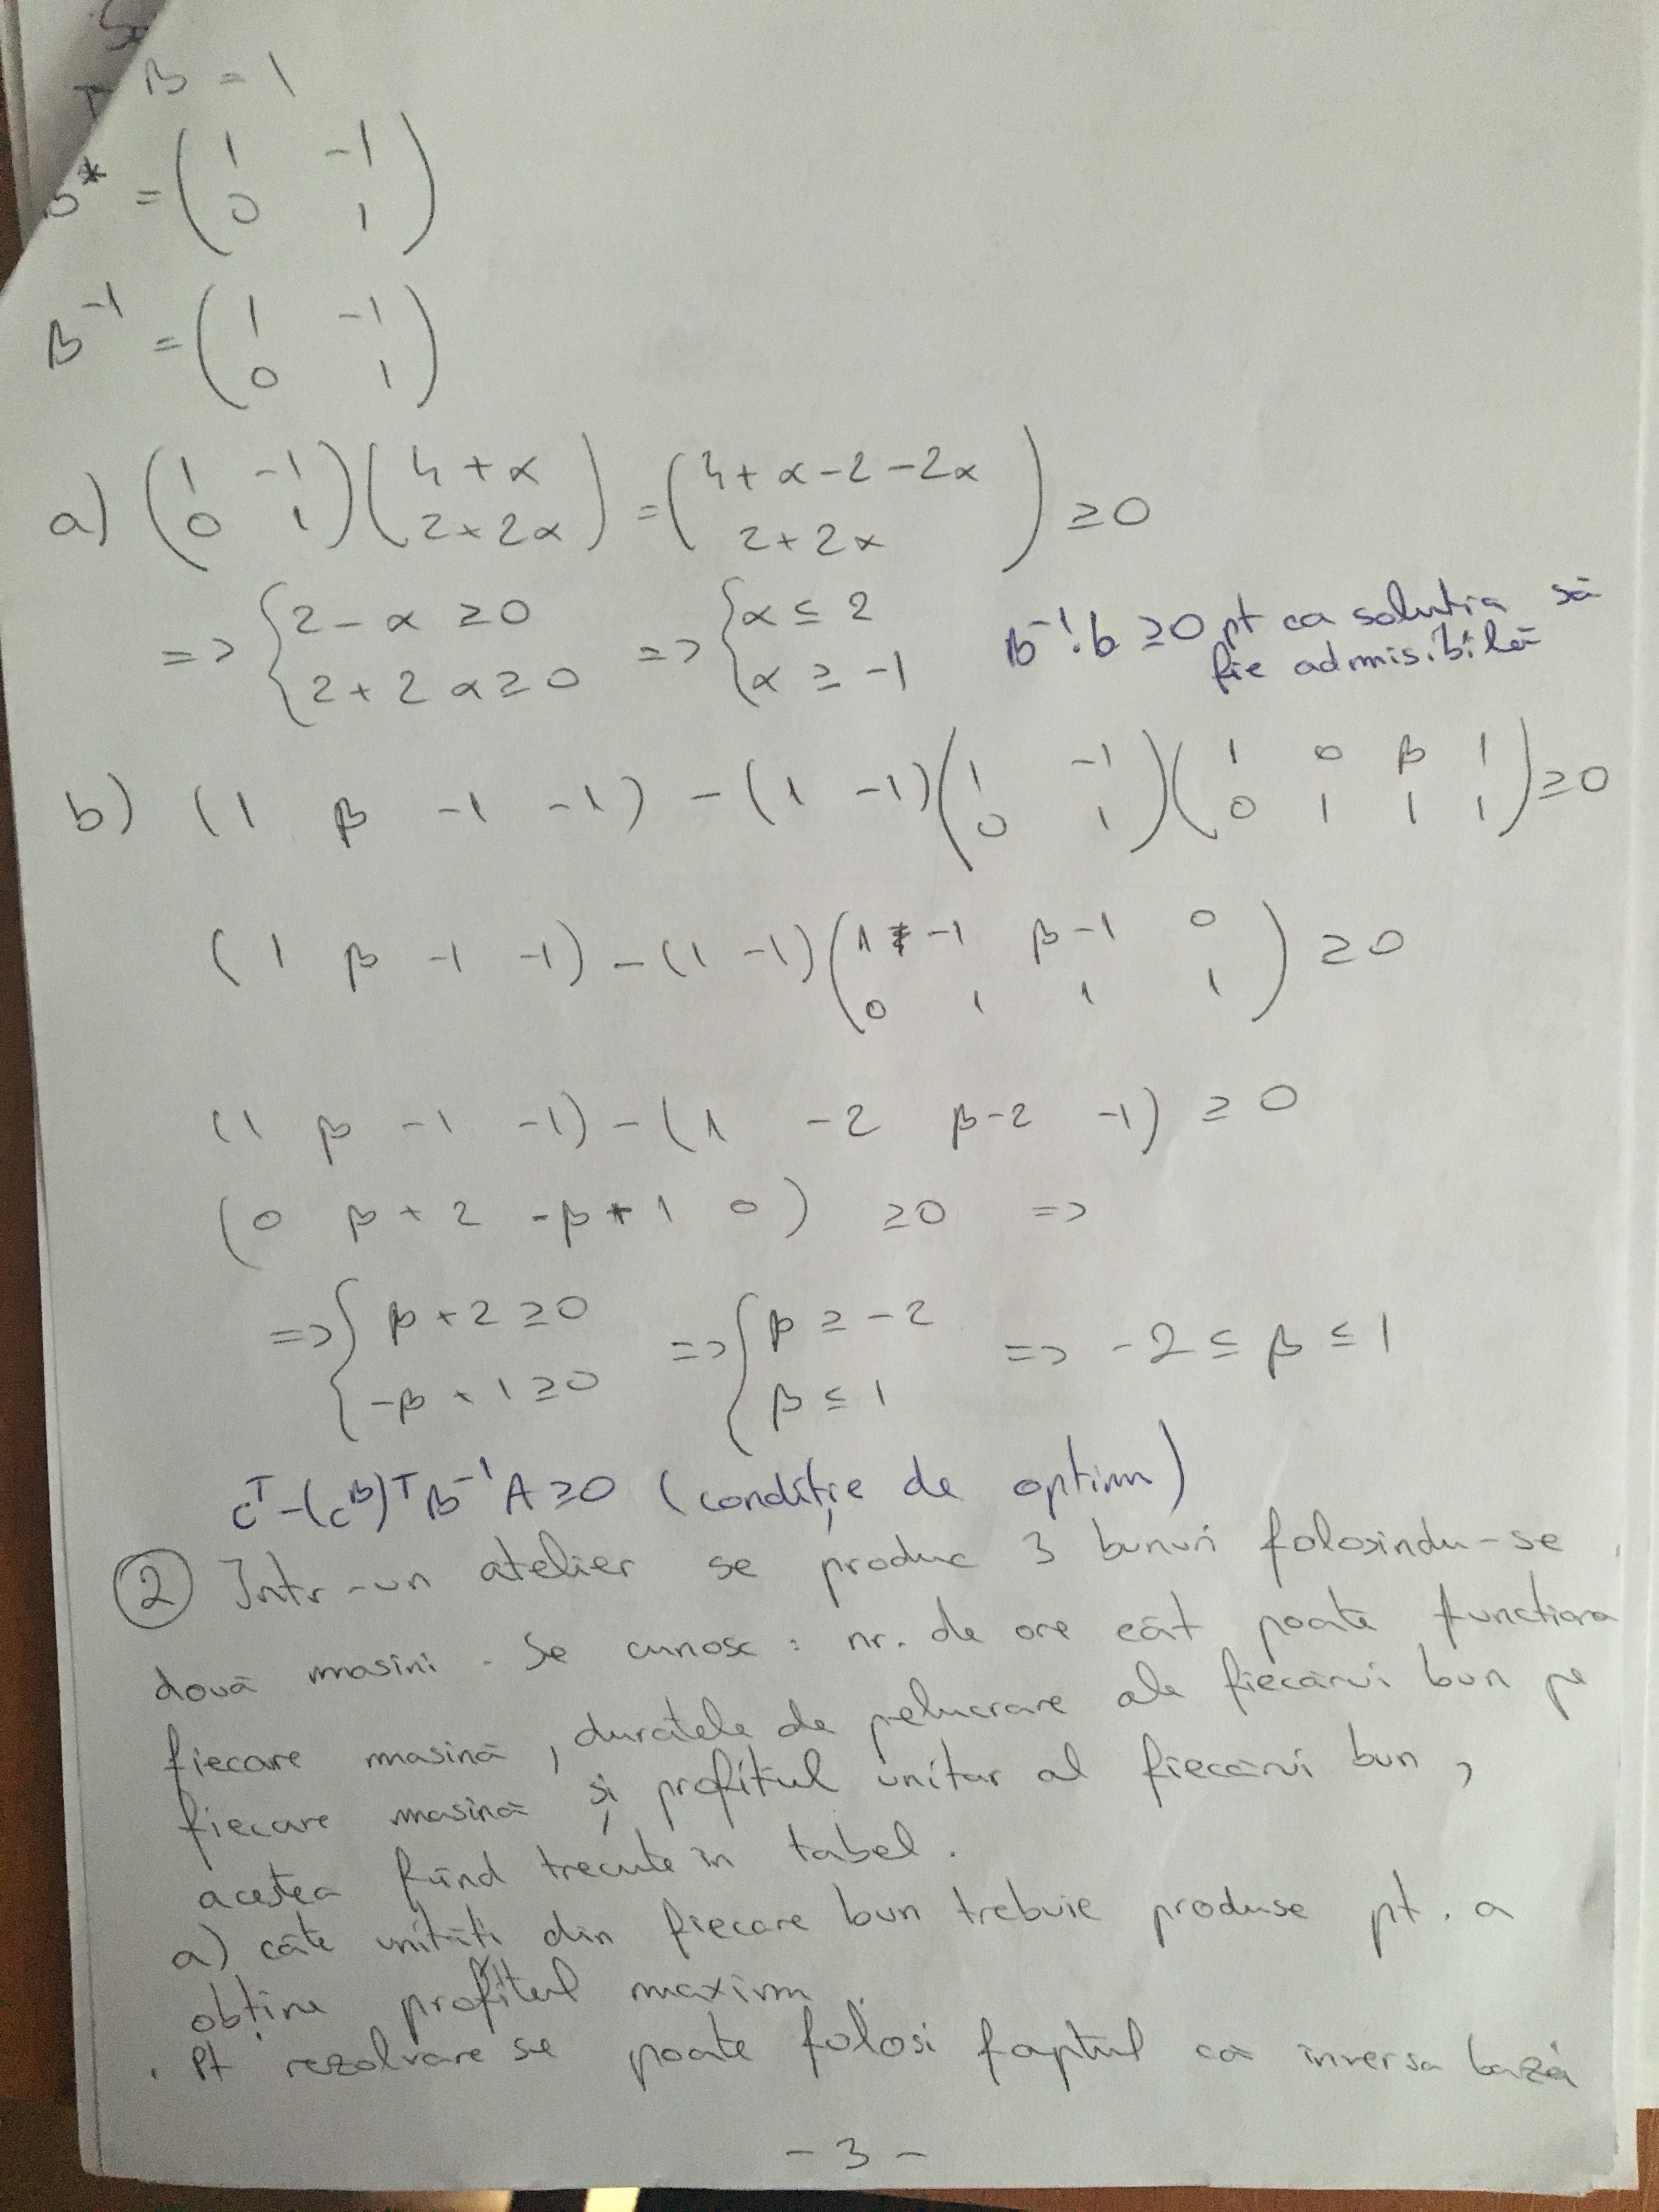 B = 1
* = ( 1 -1
0 1 )
B⁻¹ = ( 1 -1
0 1 )
a) ( 1 -1
0 1 ) ( 4 + α
2 + 2α ) = ( 4 + α - 2 - 2α
2 + 2α ) ≥ 0
=> { 2 - α ≥ 0
2 + 2α ≥ 0 => { α ≤ 2
α ≥ -1
B⁻¹·b ≥ 0 pt ca solutia să
fie admisibilă
b) (1 β -1 -1) - (1 -1) ( 1 -1
0 1 ) ( 1 0 β 1
0 1 1 1 ) ≥ 0
(1 β -1 -1) - (1 -1) ( 1 -1 β-1 0
0 1 1 1 ) ≥ 0
(1 β -1 -1) - (1 -2 β-2 -1) ≥ 0
(0 β+2 -β+1 0) ≥ 0 =>
=> { β + 2 ≥ 0
-β + 1 ≥ 0 => { β ≥ -2
β ≤ 1 => -2 ≤ β ≤ 1
cᵀ-(cᴮ)ᵀB⁻¹A ≥ 0 (condiție de optim)
② Intr-un atelier se produc 3 bunuri folosindu-se
două masini. Se cunosc: nr. de ore cât poate functiona
fiecare masină, duratele de pelucrare ale fiecărui bun pe
fiecare masină și profitul unitar al fiecărui bun,
acestea fiind trecute in tabel.
a) câte unităti din fiecare bun trebuie produse pt. a
obține profitul maxim.
. Pt rezolvare se poate folosi faptul că inversa bază
- 3 -